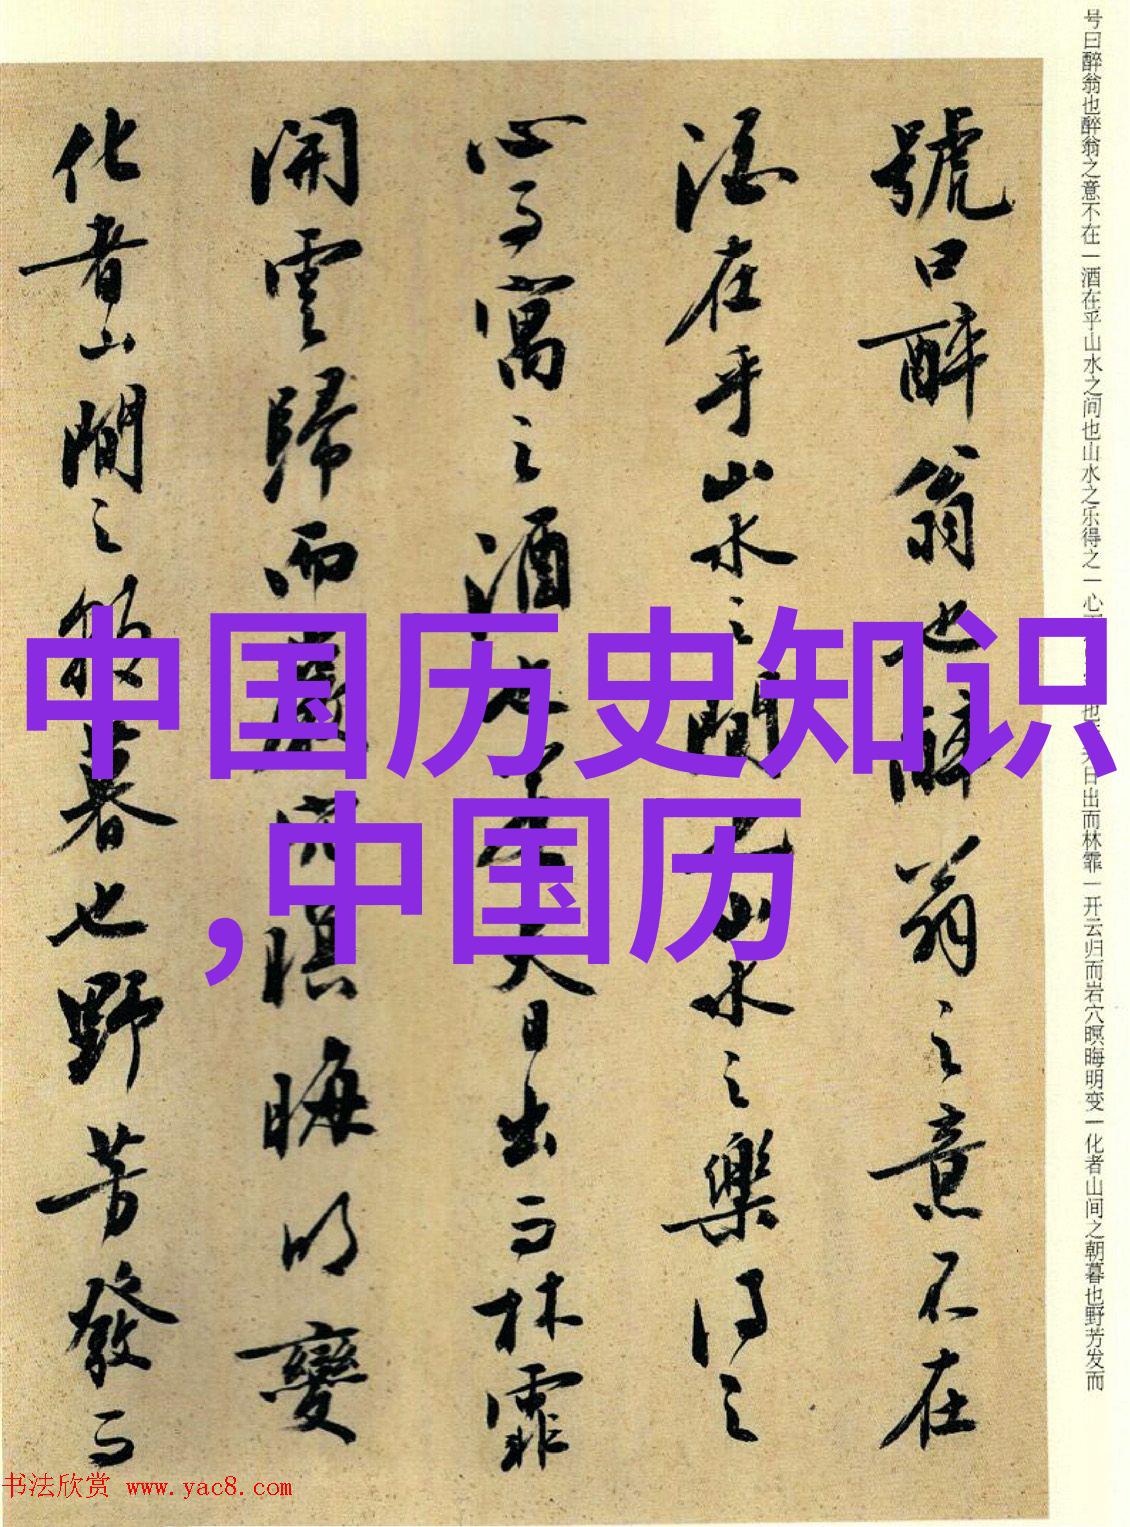 号曰醉翁也醉翁之意不在一酒在乎山水之间也山水之乐得之一心也夫日出而林霏一开云归而岩穴暝晦明变一化者山间之朝暮也野芳发而
號曰醉翁也醉翁之意不在
酒在乎山水之間也山水之樂得之
心而寓之酒也若夫日出而林霏
開雲歸而巖穴暝晦明變
化者山間之朝暮也野芳發而
中国历史知识
,中国历
书法欣赏 www.yac8.com